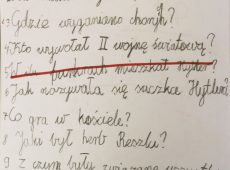 3 Gdzie wyganiano chorych?
4. Kto wywołał II wojnę światową?
5 W ilu bunkrach mieszkał Hytler?
6 Jak nazywała się suczka Hytlera?
7 Co gra w kościele?
8 Jaki był herb Reszla?
9 Z czym były związane